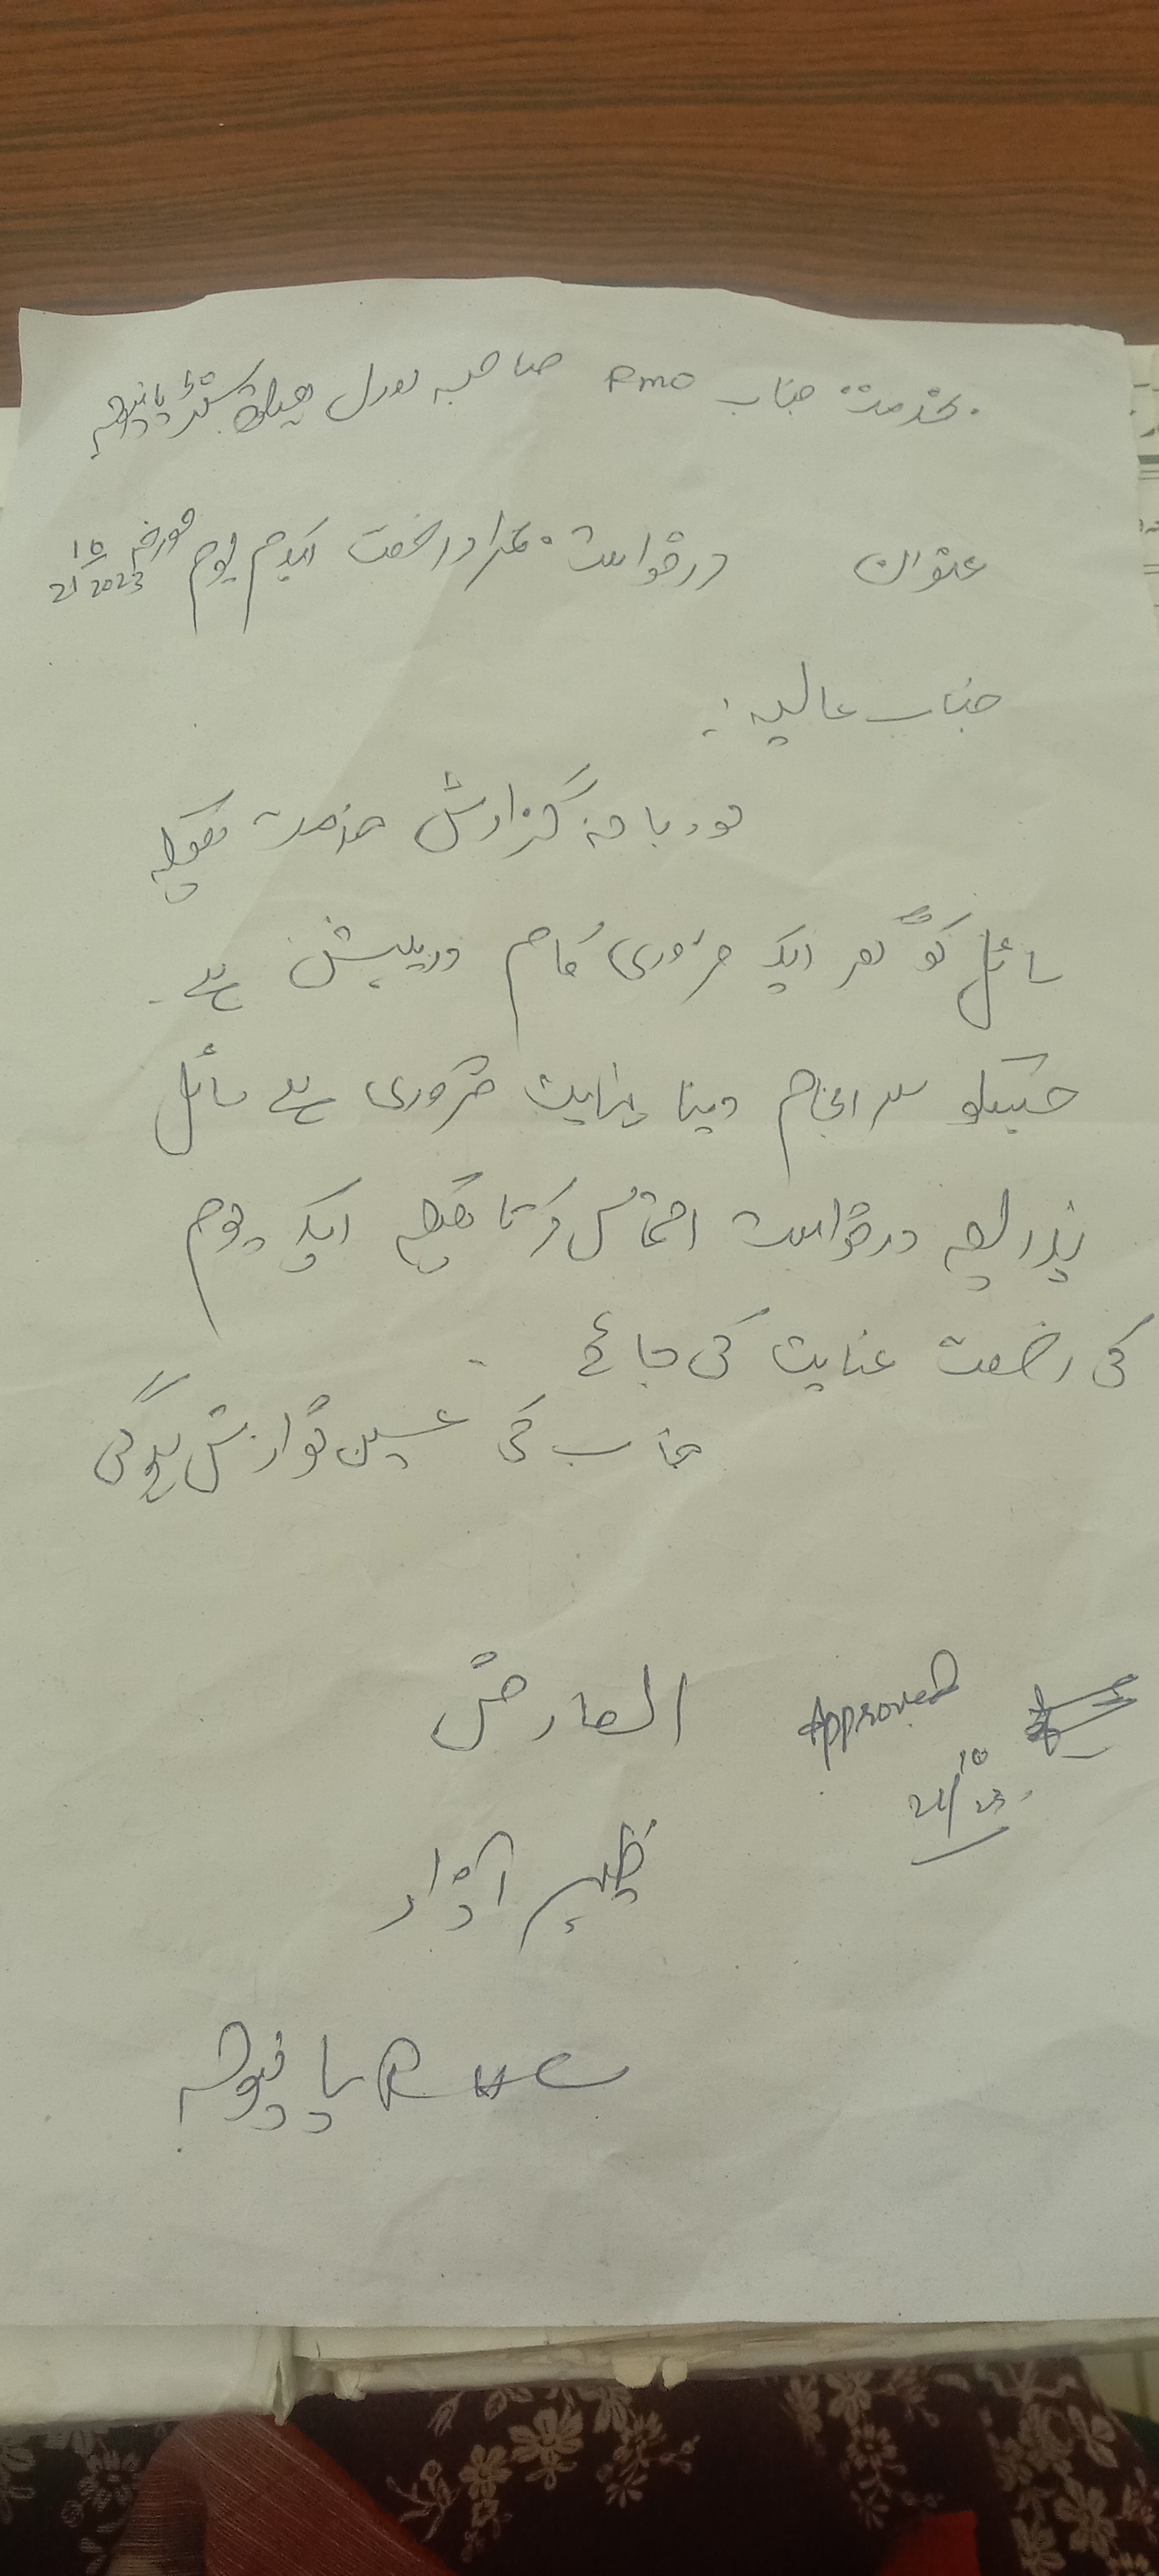 بخدمت جناب RMO صاحبہ رورل ہیلتھ سنٹر پانیولہ
عنوان درخواست بمراد رخصت ایکدم یوم مورخہ 21/10/2023
جناب عالیہ:۔
مودبانہ گزارش خدمت ہیکہ
سائل کو گھر ایک ضروری کام درپیش ہے۔
جسکو سر انجام دینا نہایت ضروری ہے سائل
بذریعہ درخواست التماس کرتا ہیکہ ایک یوم
کی رخصت عنایت کی جائے۔
جناب کی عین نوازش ہوگی
العارض
Approved
21/10/23
ظہیر آزاد
RHC پانیولہ